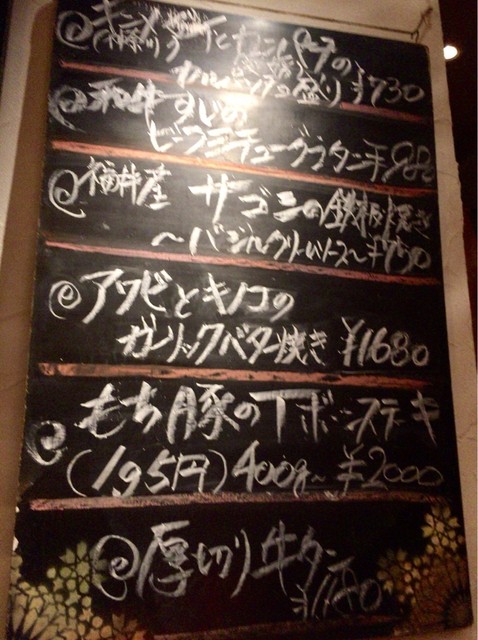 @キンメ
のカルパッチョ盛り ¥730
@和牛すじの
ビーフシチューグラタン
@福井産 サゴシの鉄板焼き
〜バジルクリームソース〜 ¥750
@アワビとキノコの
ガーリックバター焼き ¥1680
@もち豚のTボーンステーキ
(195円) 400g〜 ¥2000
@厚切り牛タン